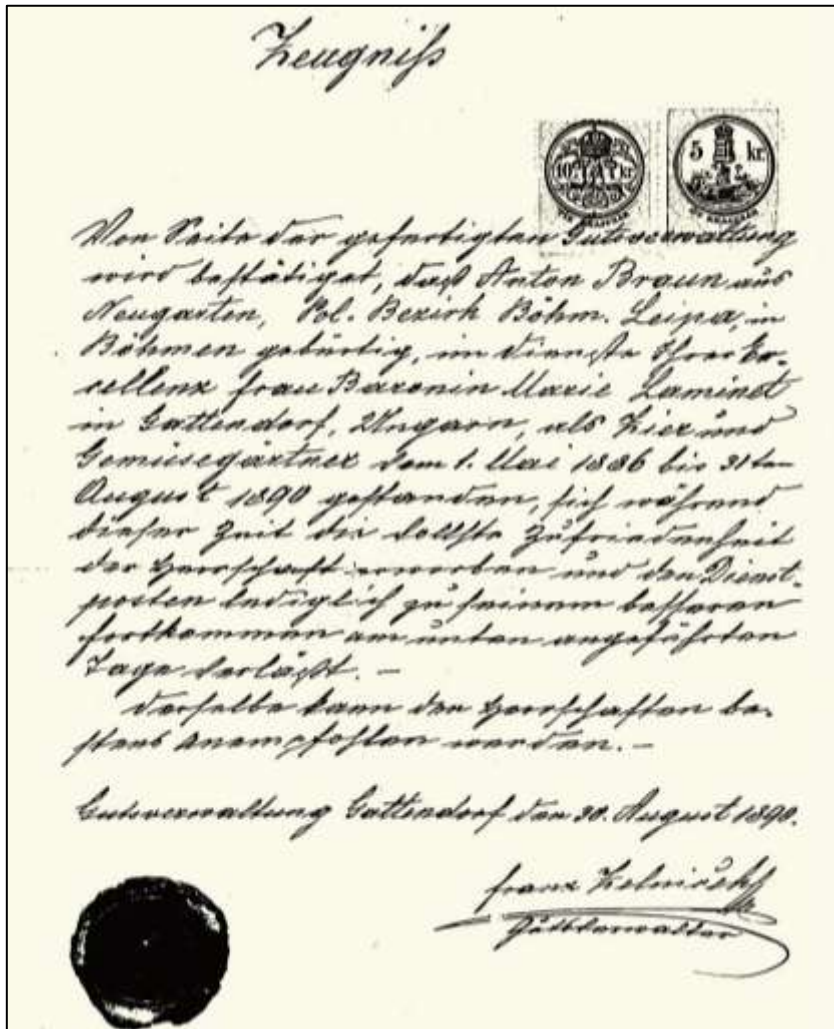 Zeugniß
10 kr.
5 kr.
Von Seite der gefertigten Gutsverwaltung
wird bestätiget, daß Anton Braun aus
Neugarten, Pol. Bezirk Böhm. Leipa, in
Böhmen gebürtig, im Dienste Ihrer Ex-
cellenz Frau Baronin Marie Laminet
in Gattendorf, Ungarn, als Zier und
Gemüsegärtner vom 1. Mai 1886 bis 31ten
August 1890 gestanden, sich während
dieser Zeit die vollste Zufriedenheit
der Herrschaft erworben und den Dienst-
posten lediglich zu seinem besseren
Fortkommen am unten angeführten
Tage verläßt. –
Derselbe kann den Herrschaften be-
stens anempfohlen werden. –
Gutsverwaltung Gattendorf den 30. August 1890.
Franz
Gutsverwalter